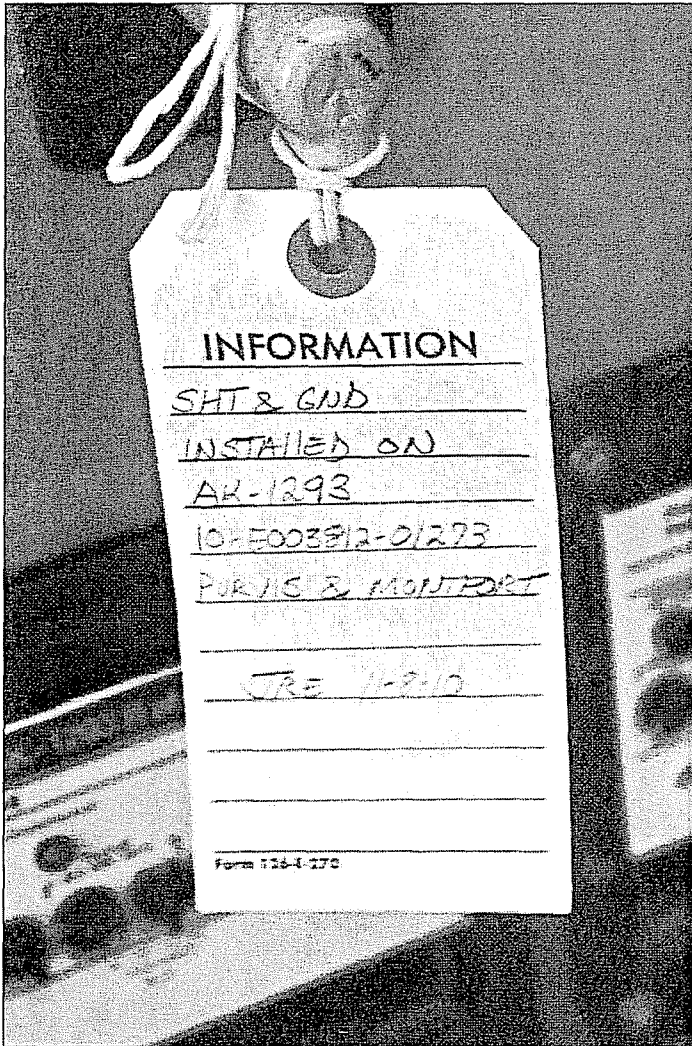 INFORMATION
SHT & GND
INSTALLED ON
AK-1293
10-E003812-01273
PURVIS & MONTFORT
JRE 11-8-10
Form 126-4-270